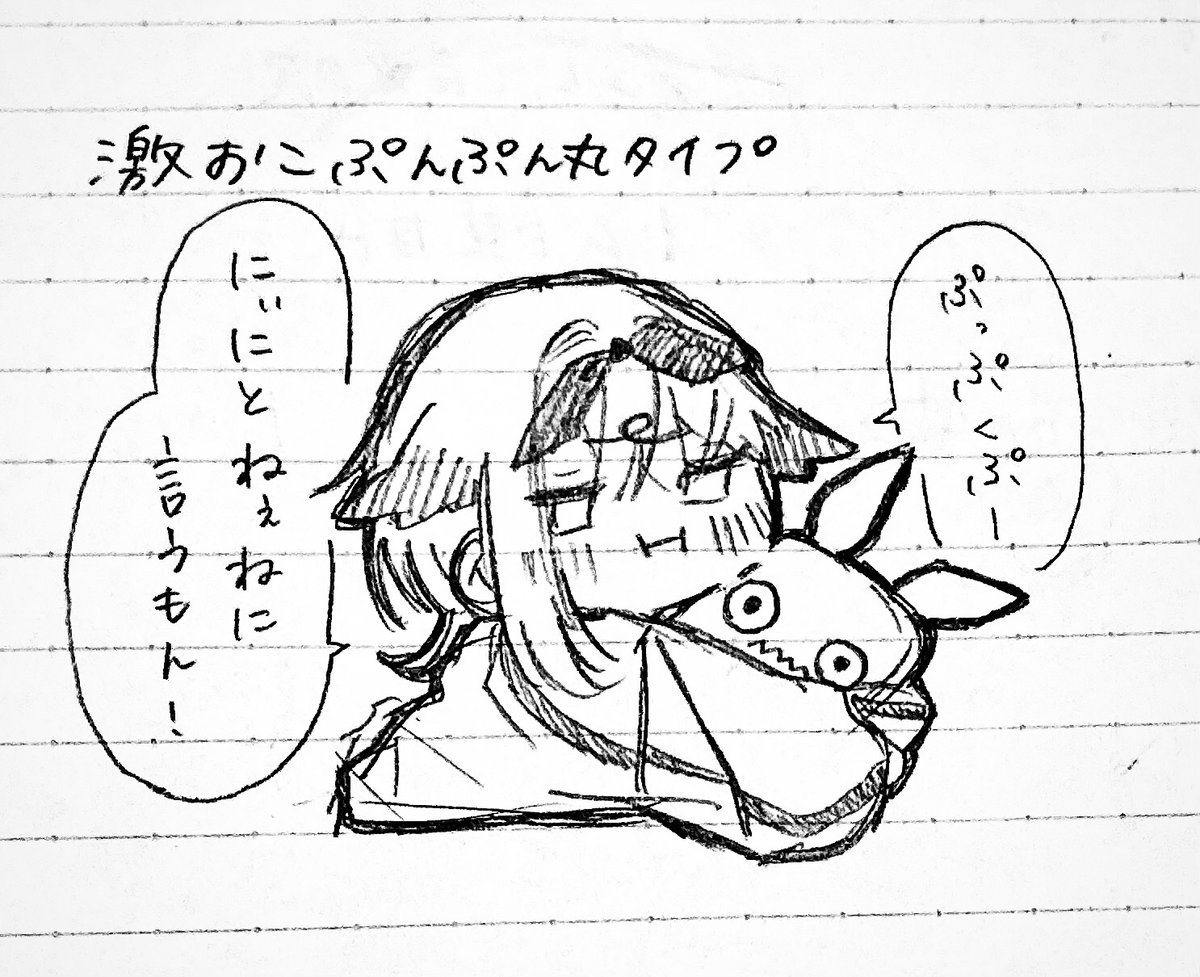 激おこぷんぷん丸タイプ
ぷっぷくぷー
にぃにとねぇねに
言うもん!